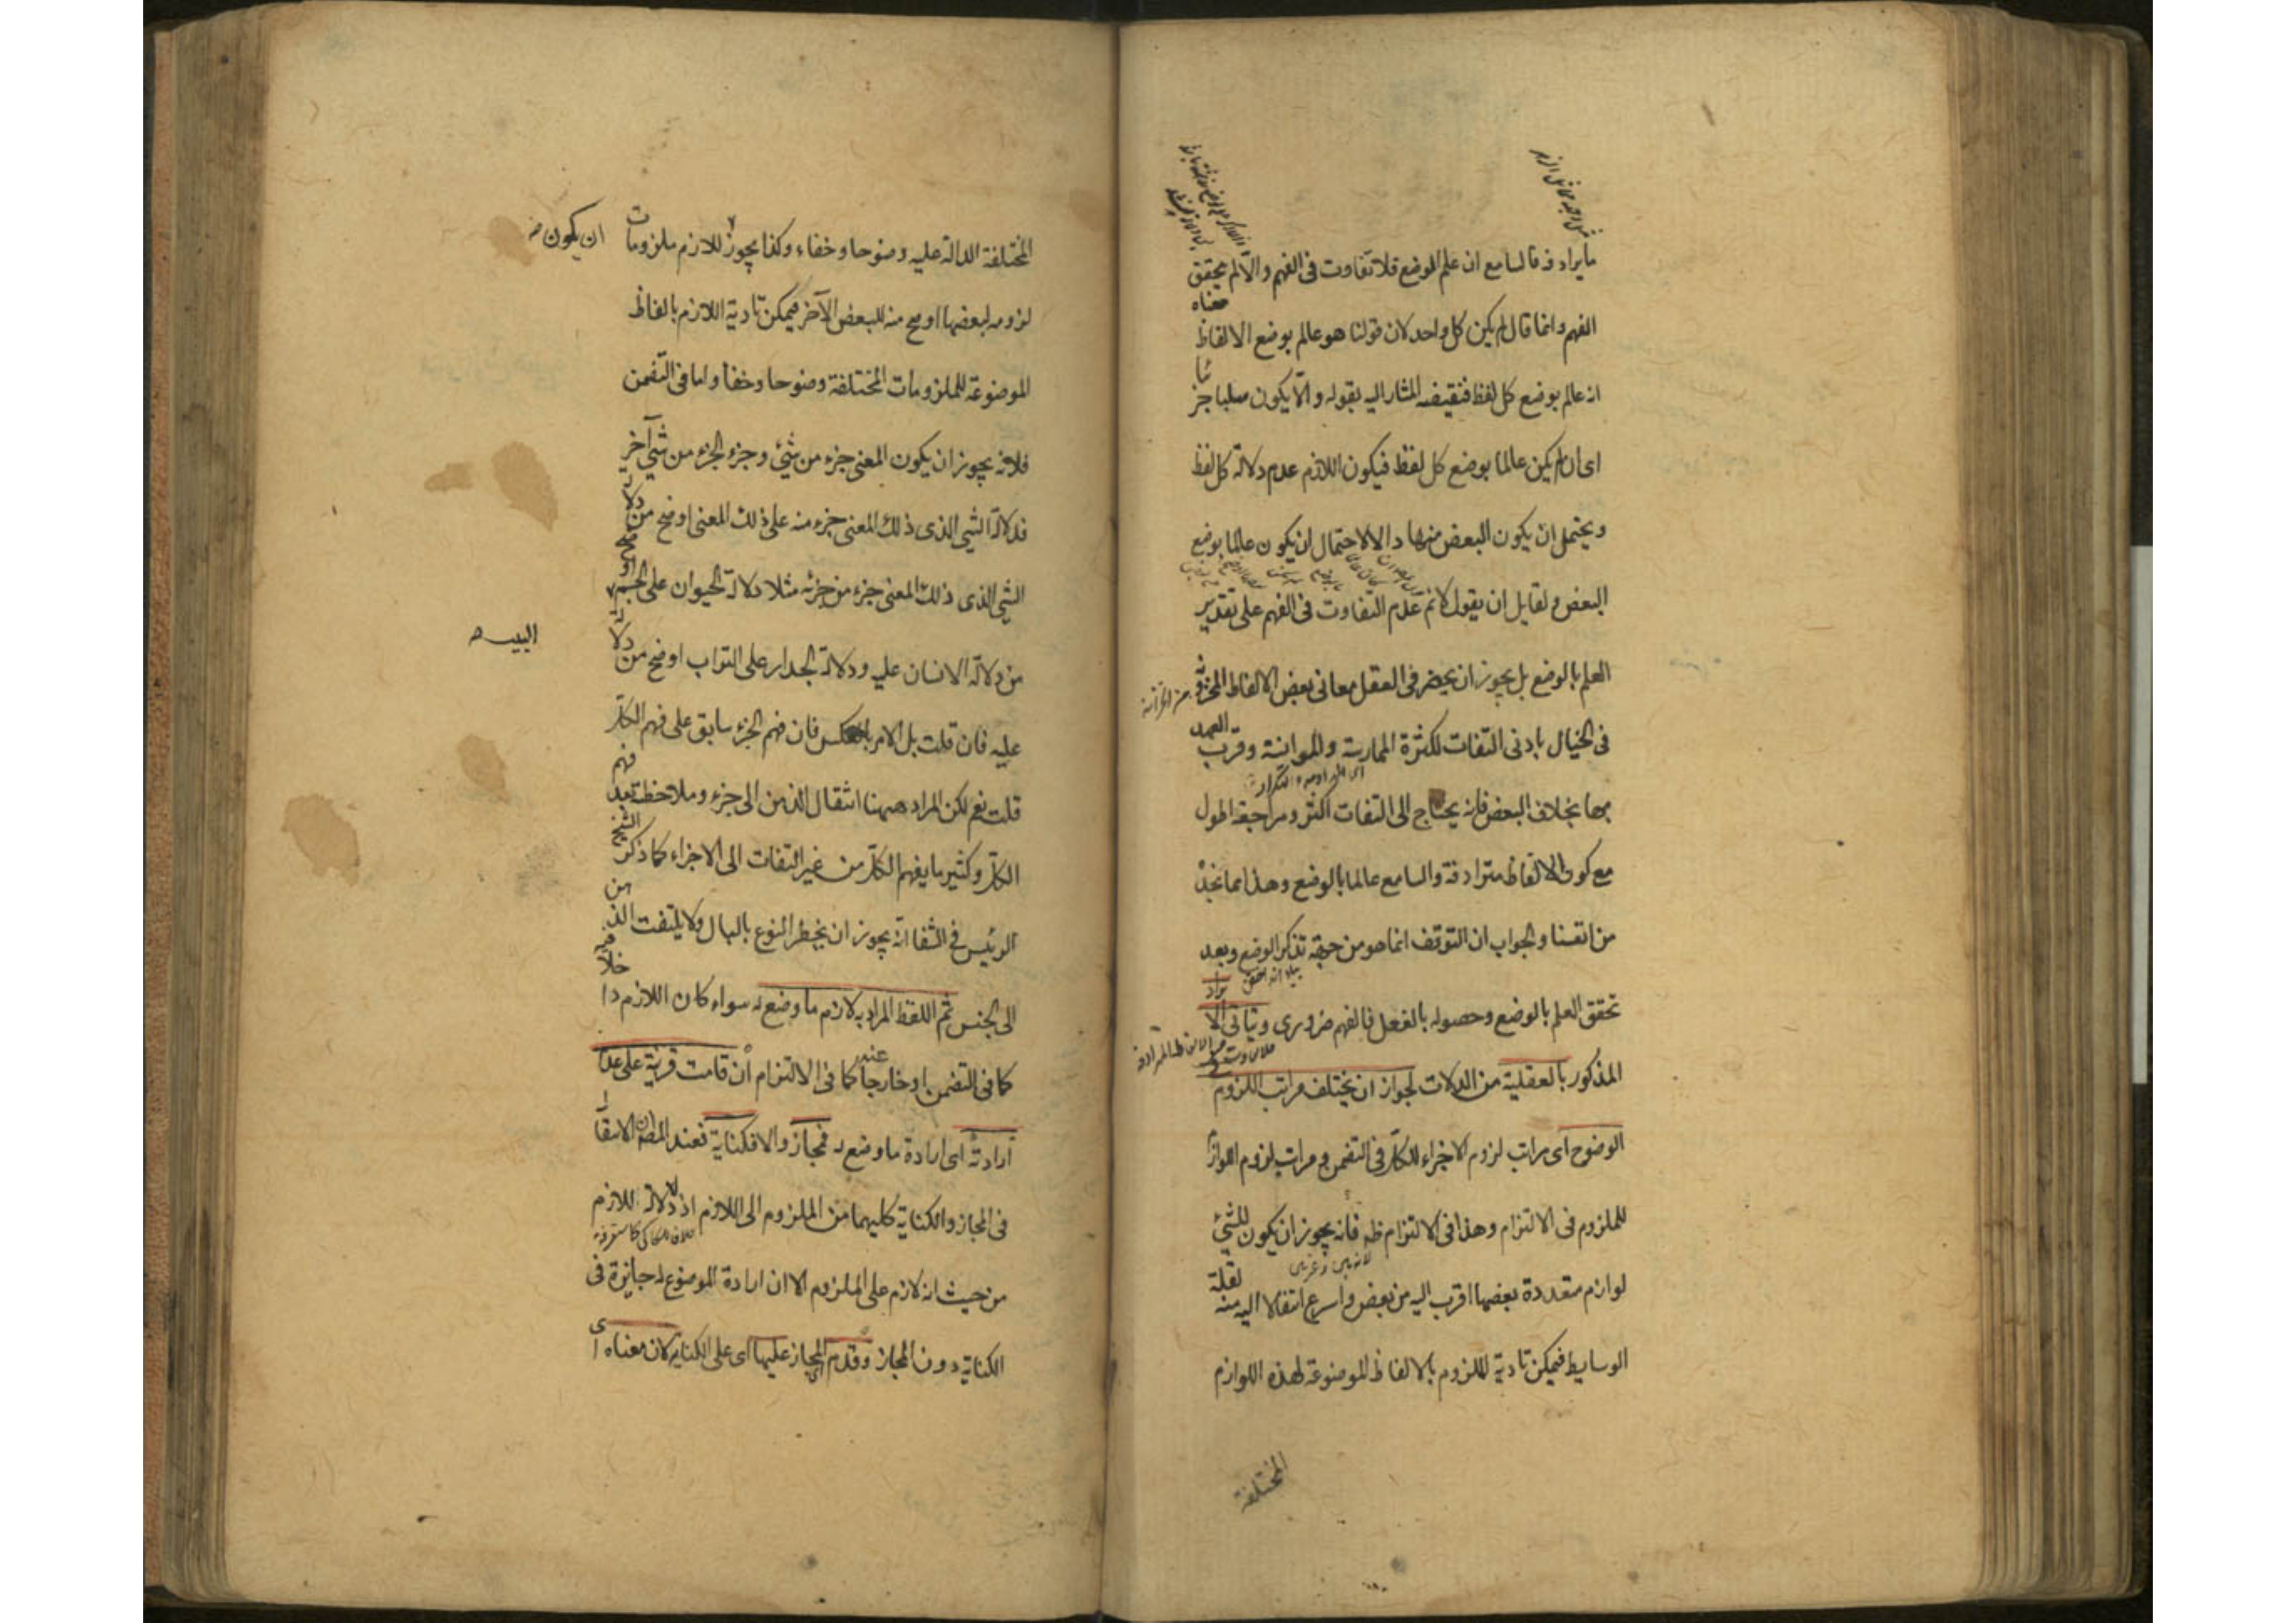 ما يرادفه فالسامع ان علم الوضع فلا تفاوت فى الفهم والا لم يتحقق
الفهم وانما قال لم يكن كل واحد لان قولنا هو عالم بوضع الالفاظ معناه
انه عالم بوضع كل لفظ فنقيضه المشار اليه بقوله والا يكون سلبا جزئيا
اى ان لم يكن عالما بوضع كل لفظ فيكون اللازم عدم دلالة كل لفظ
ويحتمل ان يكون البعض منها دالا لاحتمال ان يكون عالما بوضع
البعض ولقايل ان يقول لا نم عدم التفاوت فى الفهم على تقدير
العلم بالوضع بل يجوز ان يحضر فى العقل معانى بعض الالفاظ المخزونة
فى الخيال بادنى التفات لكثرة الممارسة والموانسة وقرب العهد
بها بخلاف البعض فانه يحتاج الى التفات اكثر ومراجعة اطول
مع كون الالفاظ مترادفة والسامع عالما بالوضع وهذا مما نجده
من انفسنا والجواب ان التوقف انما هو من جهة تذكر الوضع وبعد
تحقق العلم بالوضع وحصوله بالفعل فالفهم ضرورى ويتاتى الايراد
المذكور بالعقلية من الدلالات لجواز ان يختلف مراتب اللزوم
الوضوح اى مراتب لزوم الاجزاء للكل فى التضمن ومراتب لزوم اللوازم
للملزوم فى الالتزام وهذا فى الالتزام ظه فانه يجوز ان يكون للشئ
لوازم متعددة بعضها اقرب اليه من بعض واسرع انتقالا اليه منه لقلة
الوسايط فيمكن تادية الملزوم بالالفاظ الموضوعة لهذه اللوازم
المختلفة
المختلفة الدالة عليه وضوحا وخفاء وكذا يجوز للازم ملزومات
ان يكون
لزومه لبعضها اوضح منه للبعض الآخر فيمكن تادية اللازم بالفاظ
الموضوعة للملزومات المختلفة وضوحا وخفا واما فى التضمن
فلانه يجوز ان يكون المعنى جزء من شئ وجزء الجزء من شئ آخر
فدلالة الشئ الذى ذلك المعنى جزء منه على ذلك المعنى اوضح من دلالة
الشئ الذى ذلك المعنى جزء من جزئه مثلا دلالة الحيوان على الجسم
من دلالة الانسان عليه ودلالة الجدار على التراب اوضح من دلالة
البيت
عليه فان قلت بل الامر بالعكس فان فهم الجزء سابق على فهم الكل
قلت نعم لكن المراد ههنا انتقال الذهن الى جزء وملاحظته بعد فهم
الكل وكثير ما يفهم الكل من غير التفات الى الاجزاء كما ذكر الشيخ
الرئيس فى الشفا انه يجوز ان يخطر النوع بالبال ولا يلتفت الذهن
الى الجنس ثم اللفظ المراد به لازم ما وضع له سواء كان اللازم داخلا فيه
كما فى التضمن او خارجا عنه كما فى الالتزام ان قامت قرينة على عدم
ارادته اى ارادة ما وضع له فمجاز والا فكناية فعند المص ان الانتقال
فى المجاز والكناية كليهما من الملزوم الى اللازم اذ لا دلالة للازم
من حيث انه لازم على الملزوم الا ان ارادة الموضوع له جايزة فى
الكناية دون المجاز وقدم المجاز عليها اى على الكناية لان معناه اى